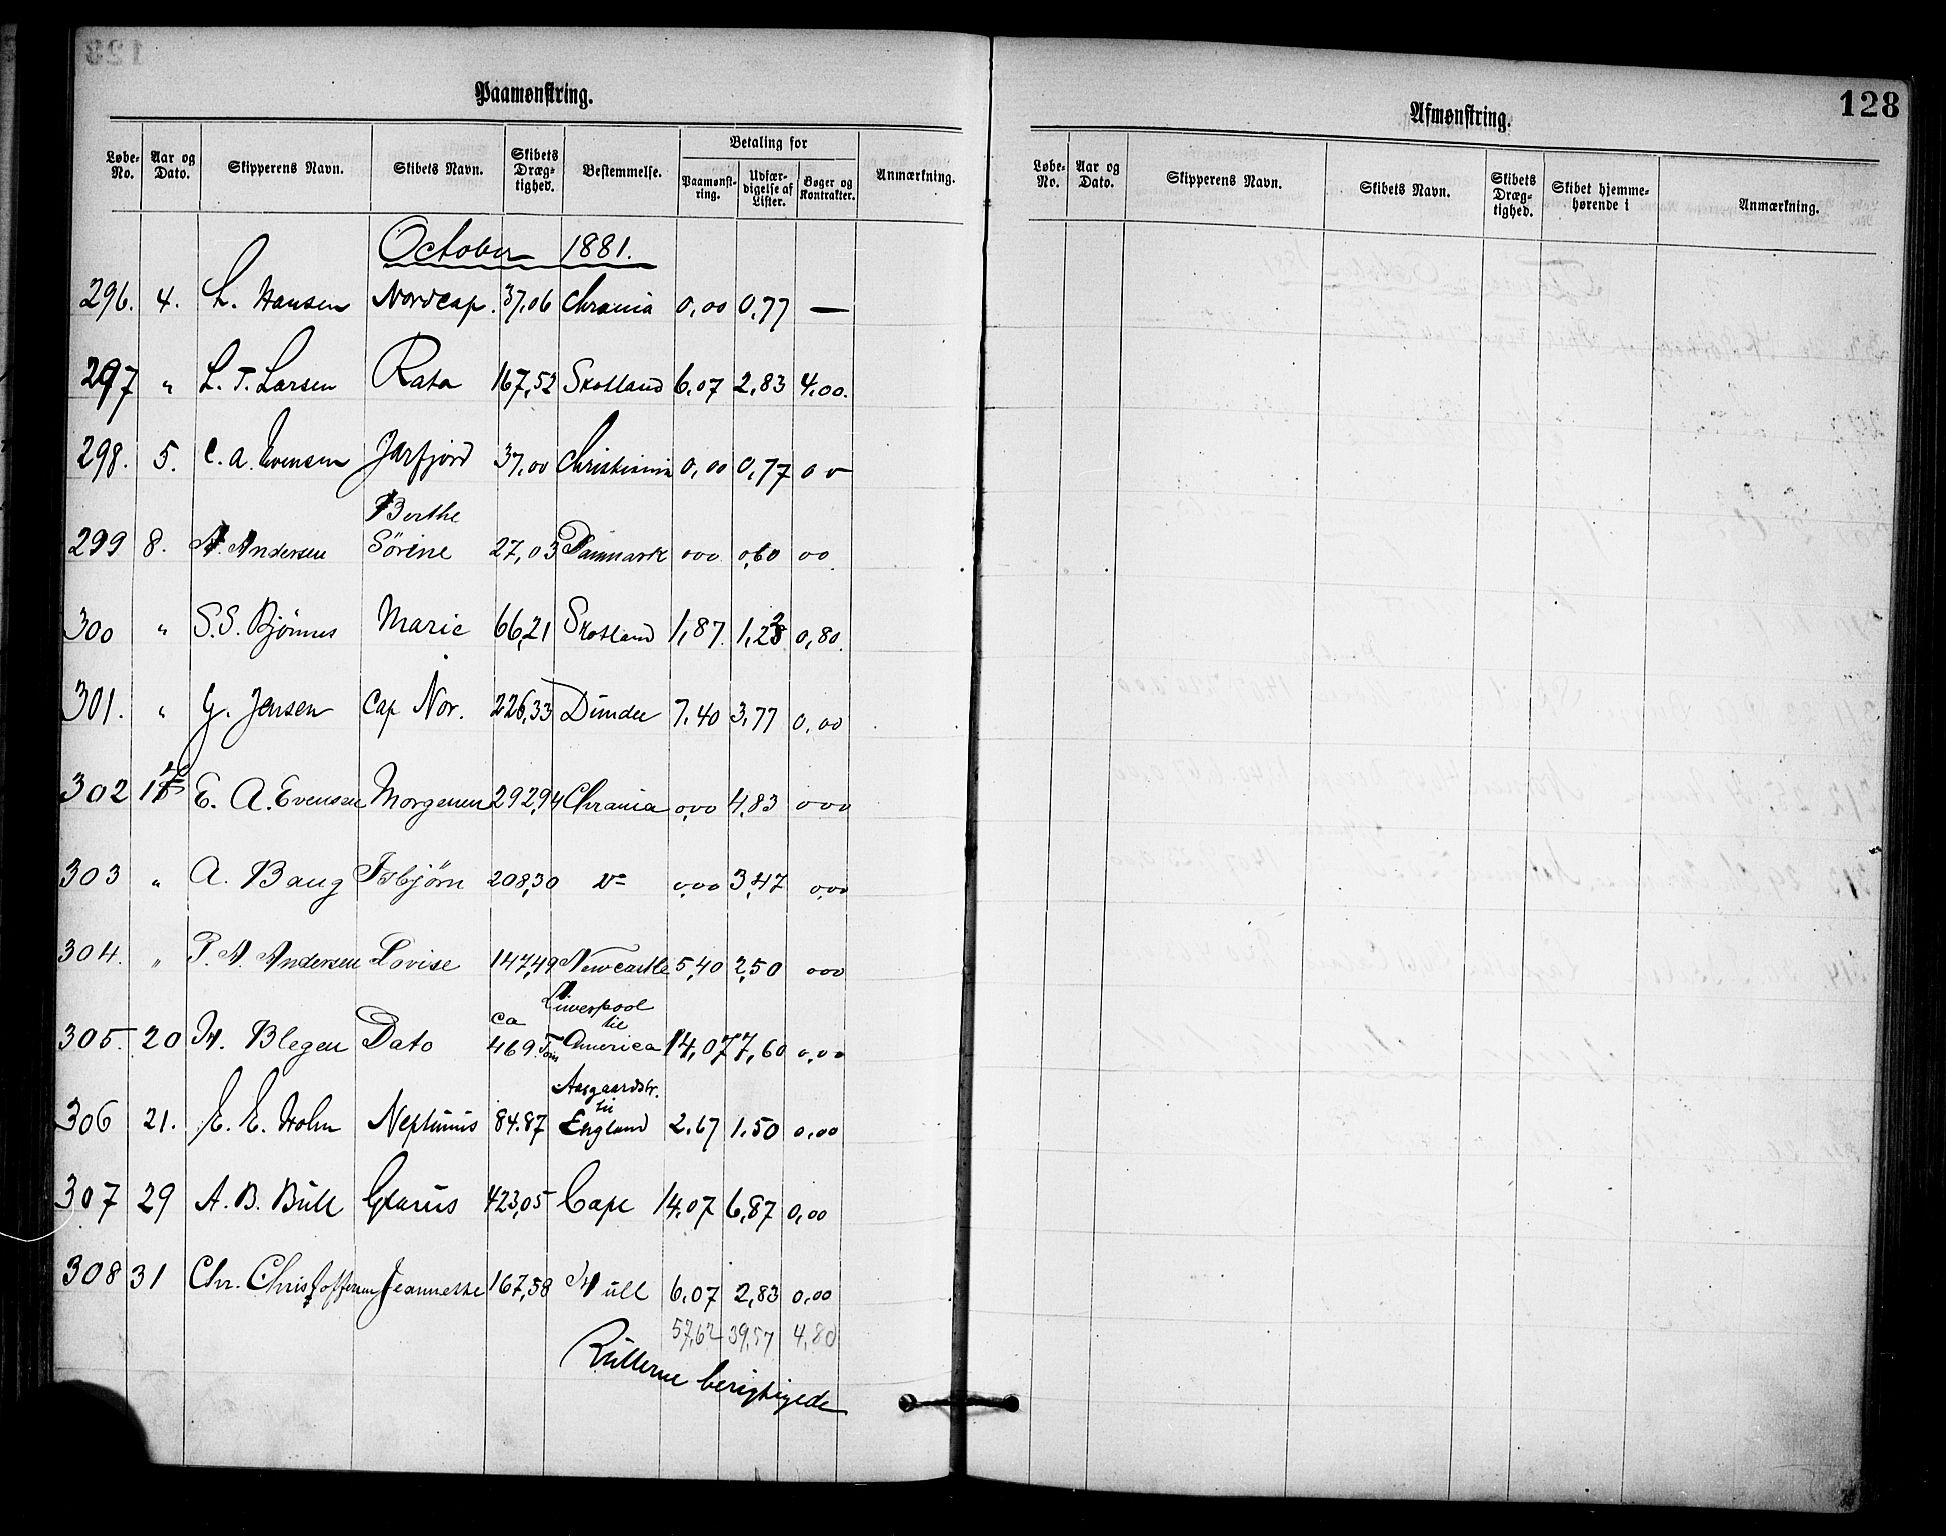 Paamønstring.
Løbe-No. Aar og Dato. Skipperens Navn. Skibets Navn. Skibets Dræg-tighed. Bestemmelse. Betaling for Paamønst-ring. Udfær-digelse af Lister. Bøger og Kontrakter. Anmærkning.
October 1881.
296. 4. L. Hansen Nordcap. 37,06 Chrania 0,00 0,77 —
297 " L. T. Larsen Rata 167,52 Skotland 6,07 2,83 4,00.
298. 5. C. A. Evensen Jarfjord 37,00 Christiania 0,00 0,77 0 0
Berthe
299 8. A. Andersen Sörine 27,03 Danmark 000 0,60 00.
300 " S. S. Bjönnes Marie 66,21 Skotland 1,87. 1,23 0,80.
301. " G. Jensen Cap Nor. 226,33 Dundee 7,40 3,77 0,00
302 E. A. Evensen Morgenen 292,94 Chrania 0,00 4,83 000
303 " A. Baug Isbjörn 208,30 0,00 3,47 0,00
304. " P. A. Andersen Lovise 147,49 Newcastle 5,40 2,50 000
Liverpool
ca til
305. 20 H. Blegen Dato 469 Tons America 14,07 7,60 0,00
Aasgaardstr.
til
306 21. E. E. Holm Neptunus 84.87 England 2.67 1.50 0,00
307 29 A. B. Bull Glarus 423,05 Cape 14,07 6,87 0,00
308 31 Chr. Christoffersen Jeannette 167,58 Hull 6,07 2,83 0,00
57,62 39,57 4,80
Rullerne berigtigede
128
Afmønstring.
Løbe-No. Aar og Dato. Skipperens Navn. Skibets Navn. Skibets Dræg-tighed. Skibet hjemme-hørende i Anmærkning.